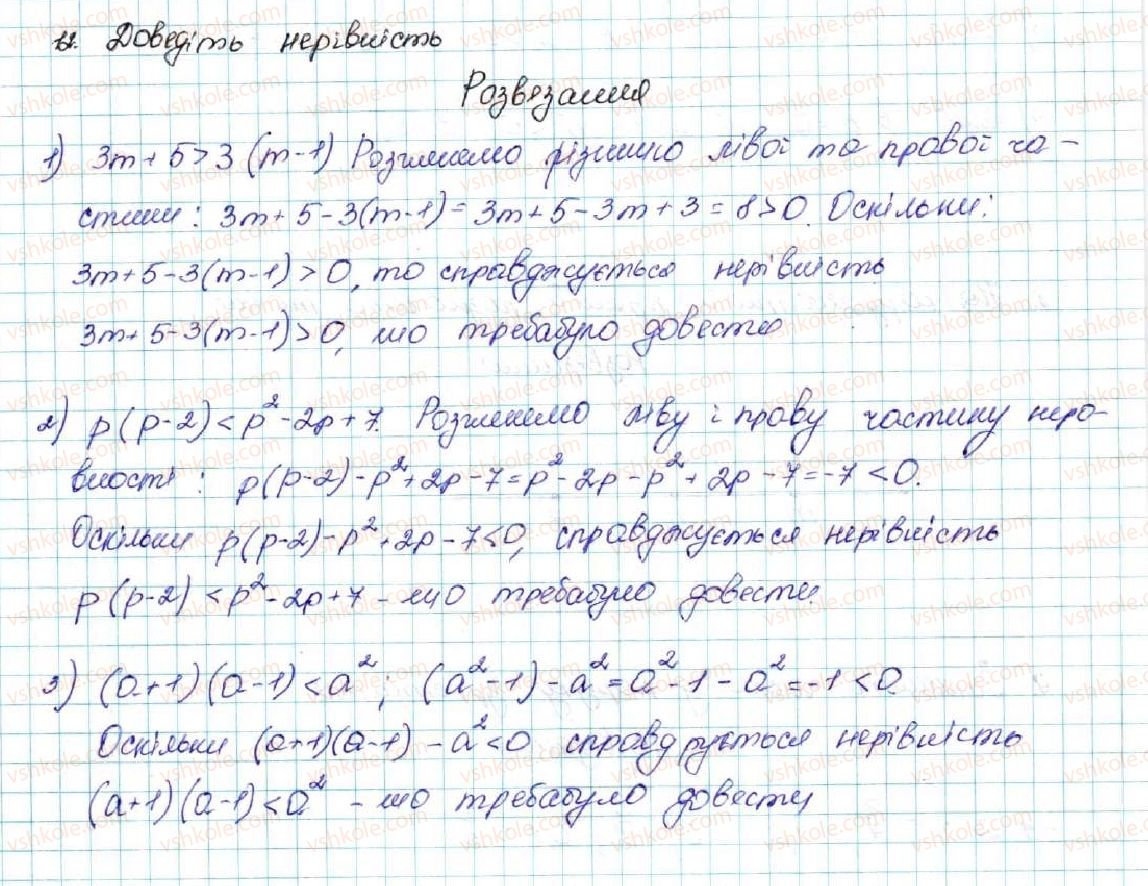 11. Доведіть нерівність
Розвязання
1) 3m + 5 > 3 (m-1) Розглянемо різницю лівої та правої ча-
стини: 3m + 5 - 3(m-1) = 3m + 5 - 3m + 3 = 8 > 0. Оскільки:
3m + 5 - 3(m-1) > 0, то справджується нерівність
3m + 5 - 3(m-1) > 0, що требабуло довести
2) p(p-2) < p² - 2p + 7. Розглянемо ліву і праву частину неро-
вності: p(p-2) - p² + 2p - 7 = p² - 2p - p² + 2p - 7 = -7 < 0.
Оскільки p(p-2) - p² + 2p - 7 < 0, справджується нерівність
p(p-2) < p² - 2p + 7 - що требабуло довести
3) (a+1)(a-1) < a²; (a² - 1) - a² = a² - 1 - a² = -1 < 0
Оскільки (a+1)(a-1) - a² < 0 справджується нерівність
(a+1)(a-1) < a² - що требабуло довести